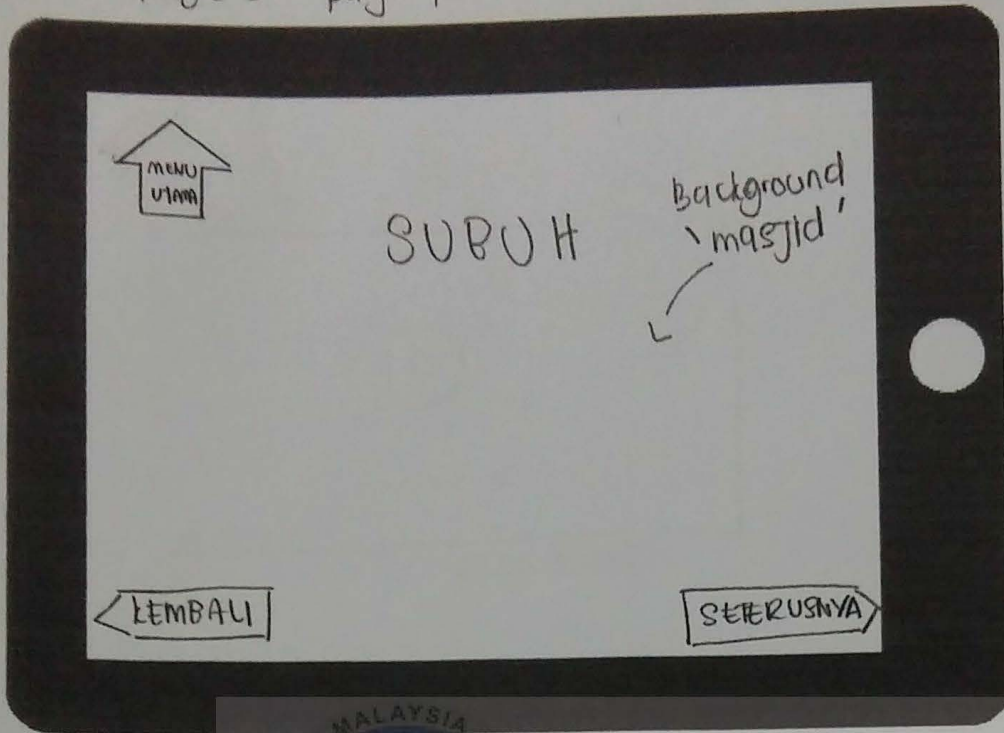 MENU
UTAMA
SUBUH
Background
'masjid'
KEMBALI
SETERUSNYA
MALAYSIA